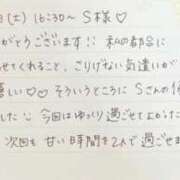 (土) 16:30〜 S様♡
がとうございます!! 私の都合に
せてくれること、さりげない気遣いが
嬉しい♡♡ そういうところに Sさんの
した♡ 今回はゆっくり過ごせてよかった
次回も 甘い時間を2人で過ごせま